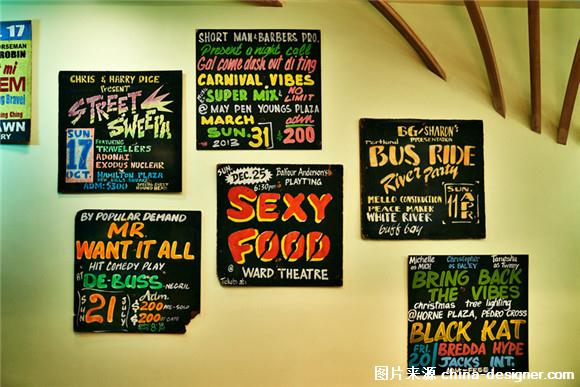 17
ORSEMAN
ROBIN
mi
EM
ng Bravel
WN
ARRY
CHRIS & HARRY DICE
PRESENT
STREET
SWEEPA
SUN.
17
OCT
FEATURING
TRAVELLERS
ADONAI
EXODUS NUCLEAR
HAMILTON PLAZA
ADM: $300
SHORT MAN & BARBERS PRO.
Present a night call
Gal come dash out di ting
CARNIVAL VIBES
"SUPER MIX"
NO
LIMIT
@ MAY PEN YOUNGS PLAZA
MARCH
adm
SUN. 31
200
2013
BG/SHARON'S
Portland
PRESENTATION
BUS RIDE
River Party
MELLO CONSTRUCTION
PEACE MAKER
WHITE RIVER
buff bay
SUN.
11
APR
BY POPULAR DEMAND
MR
WANT IT ALL
HIT COMEDY PLAY
AT
DE-BUSS
-NEGRIL
SUN
21
JULY
Adm.
$200 PRE-SOLD
$200 AT GATE
8
SUN.
DEC. 25
6:30pm
Balfour Anderson's
PLAYTING
SEXY
FOOD
@
WARD THEATRE
Michelle
as MICH
Christopher
as BALEY
Tanesha
as Tweeny
BRING BACK
THE VIBES
christmas tree lighting
@HORNE PLAZA, PEDRO CROSS
BLACK KAT
FRI.
BREDDA HYPE
JACKS INT.
图片来源 china-designer.com